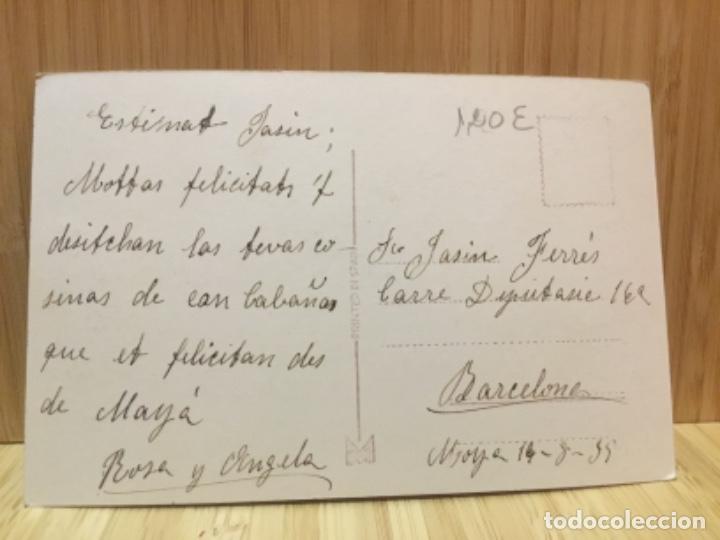 Estimat Jasin;
Moltas felicitats y
desitchan las tevas co-
sinas de can Cabañas
que et felicitan des
de Mayá
Rosa y Angela
120 E
PRINTED IN SPAIN
Sr Jasin Ferrés
Carre Diputasie 169
Barcelona
14-8-35
todocoleccion